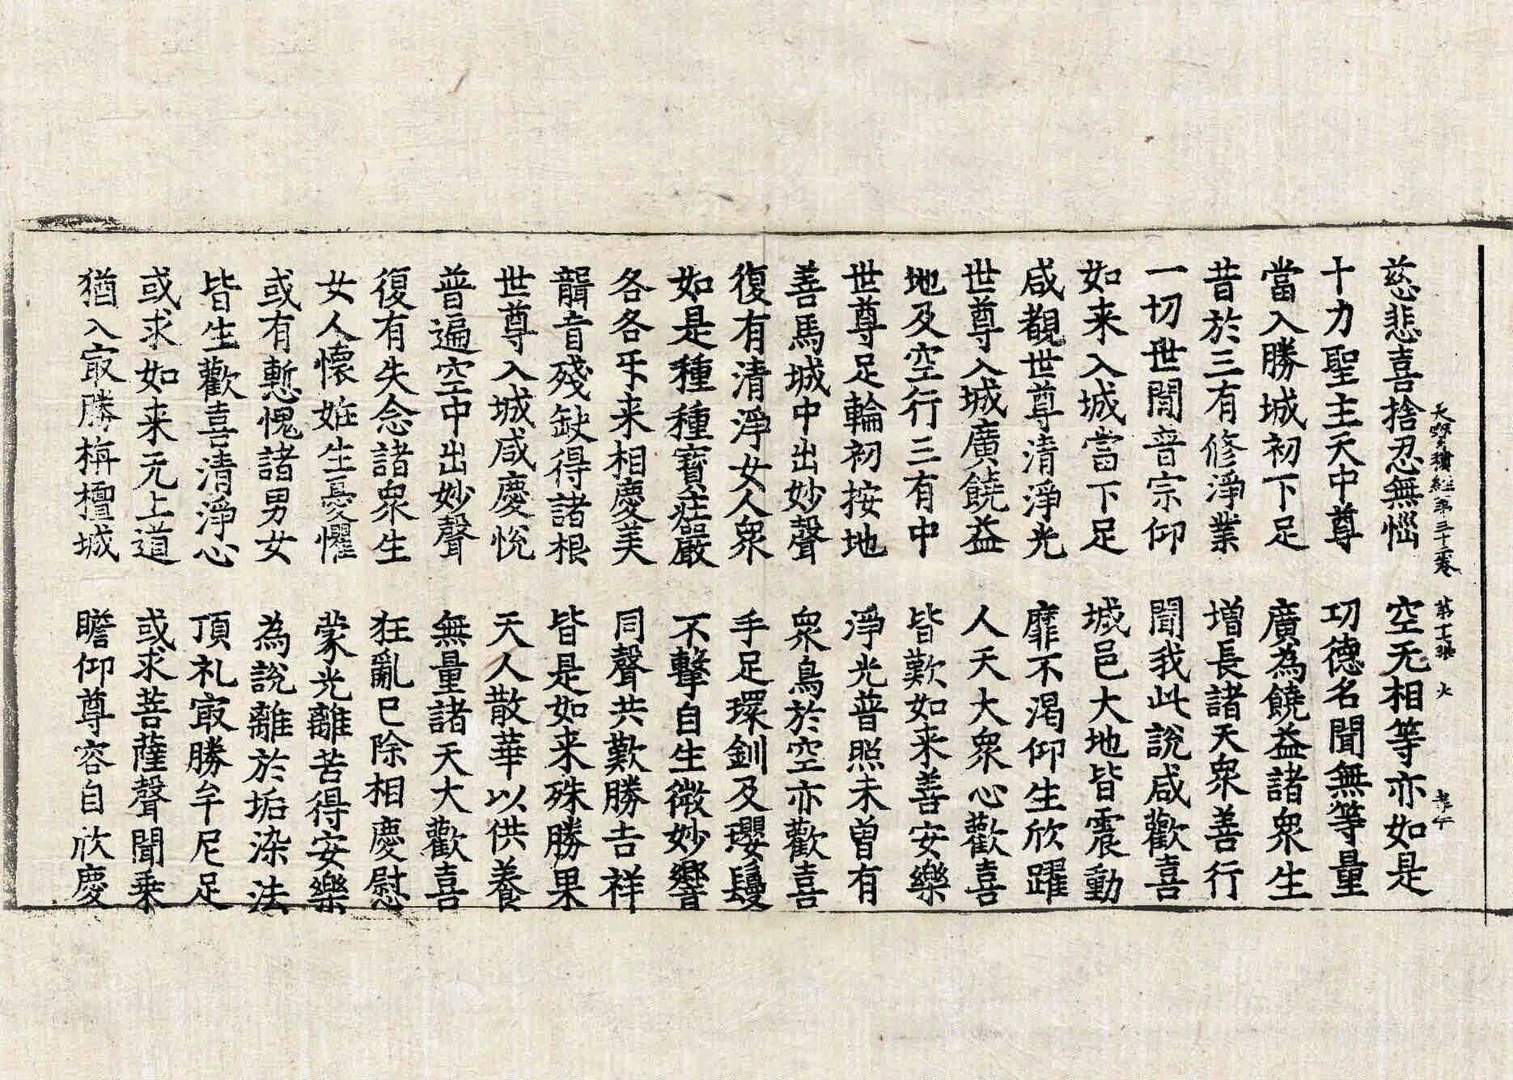 慈悲喜捨忍無惱　空无相等亦如是
大寶積經第三十五卷　第十七張　火
十力聖主天中尊　功德名聞無等量
當入勝城初下足　廣為饒益諸衆生
昔於三有修淨業　增長諸天衆善行
一切世間音宗仰　聞我此說咸歡喜
如来入城當下足　城邑大地皆震動
咸覩世尊清淨光　靡不渴仰生欣躍
世尊入城廣饒益　人天大衆心歡喜
地及空行三有中　皆歎如来善安樂
世尊足輪初按地　淨光普照未曾有
善馬城中出妙聲　衆鳥於空亦歡喜
復有清淨女人衆　手足環釧及瓔鬘
如是種種寶莊嚴　不擊自生微妙響
各各乎来相慶美　同聲共歎勝吉祥
聾盲殘缺得諸根　皆是如来殊勝果
世尊入城咸慶悅　天人散華以供養
普遍空中出妙聲　無量諸天大歡喜
復有失念諸衆生　狂亂已除相慶慰
女人懷姙生憂懼　蒙光離苦得安樂
或有慙愧諸男女　為說離於垢染法
皆生歡喜清淨心　頂礼㝡勝牟尼足
或求如来无上道　或求菩薩聲聞乗
猶入㝡勝栴檀城　瞻仰尊容自欣慶